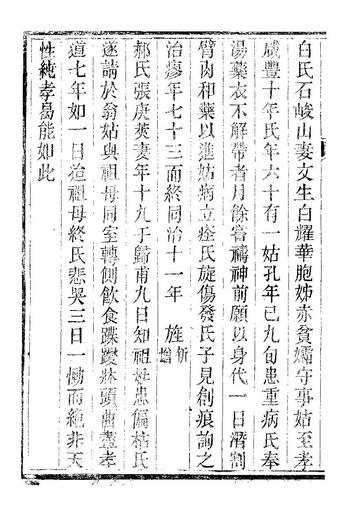 白氏石峻山妻文生白耀華胞姊赤貧孀守事姑至孝
咸豐十年氏年六十有一姑孔年已九旬患重病氏奉
湯藥衣不解帶者月餘嘗禱神前願以身代一日潛割
臂肉和藥以進姑病立痊氏旋傷發氏子見創痕詢之
治瘳年七十三而終同治十一年 旌新增
郝氏張庚英妻年十九于歸甫九日知祖母患偏枯氏
遂請於翁姑與祖母同室轉側飲食蹀躞牀頭曲盡孝
道七年如一日迨祖母終氏悲哭三日一慟而絶非天
性純孝曷能如此